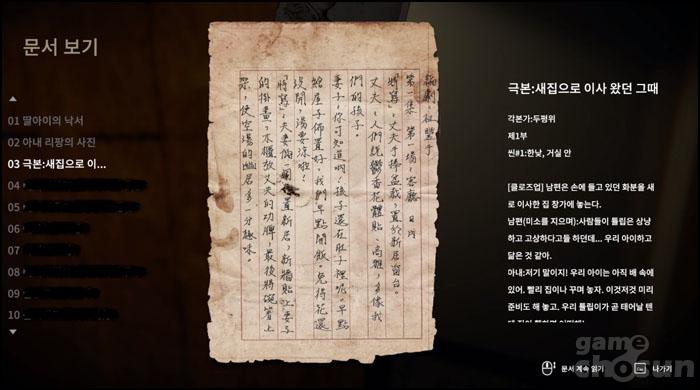 문서 보기
01 딸아이의 낙서
02 아내 리팡의 사진
03 극본:새집으로 이...
04
05
06
07
08
09
10
編劇 杜豐于
第一集 第一場，客廳 日 內
「特寫」丈夫手捧盆栽，置於新居窗台。
丈夫：人們說鬱香花體貼、高雅，多像我
們的孩子。
妻子：你可知道啊！孩子還在肚子裡呢。早點
給屋子佈置好，我們早點開飯。免得花還
沒開，湯要涼啦！
「特寫」夫妻倆一 置新居，新牆貼上妻子
的掛畫，木櫃放丈夫的功牌，最後將碗 上
架，使空蕩的幽居多 分趣味。
극본:새집으로 이사 왔던 그때
각본가:두펑위
제1부
씬#1:한낮, 거실 안
[클로즈업] 남편은 손에 들고 있던 화분을 새
로 이사한 집 창가에 놓는다.
남편(미소를 지으며):사람들이 튤립은 상냥
하고 고상하다고들 하던데... 우리 아이하고
닮은 것 같아.
아내:저기 말이지! 우리 아이는 아직 배 속에
있어. 빨리 집이나 꾸며 놓자. 이것저것 미리
준비도 해 놓고. 우리 튤립이가 곧 태어날 텐
game chosun
문서 계속 읽기
나가기